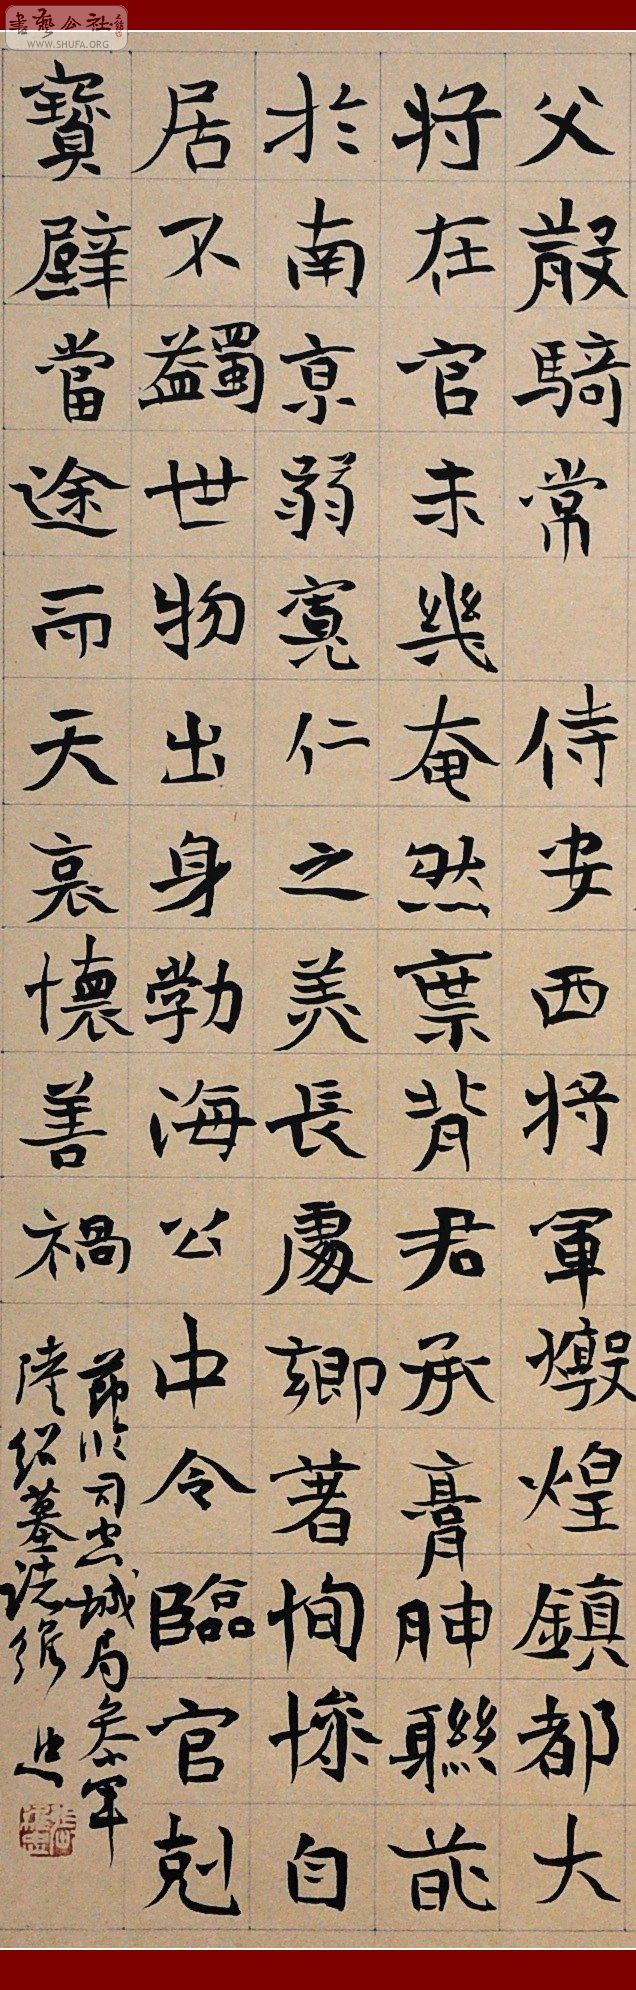 父散騎常 侍安西將軍燉煌鎮都大
將在官未幾奄然棄背君承膏胂聯芘
於南京弱寬仁之美長處卿著恂慘自
居不蠲世物出身勃海公中令臨官剋
寶壁當途而天哀懷善禍
節臨司空城局參軍
陸紹墓誌
書藝公社
WWW.SHUFA.ORG